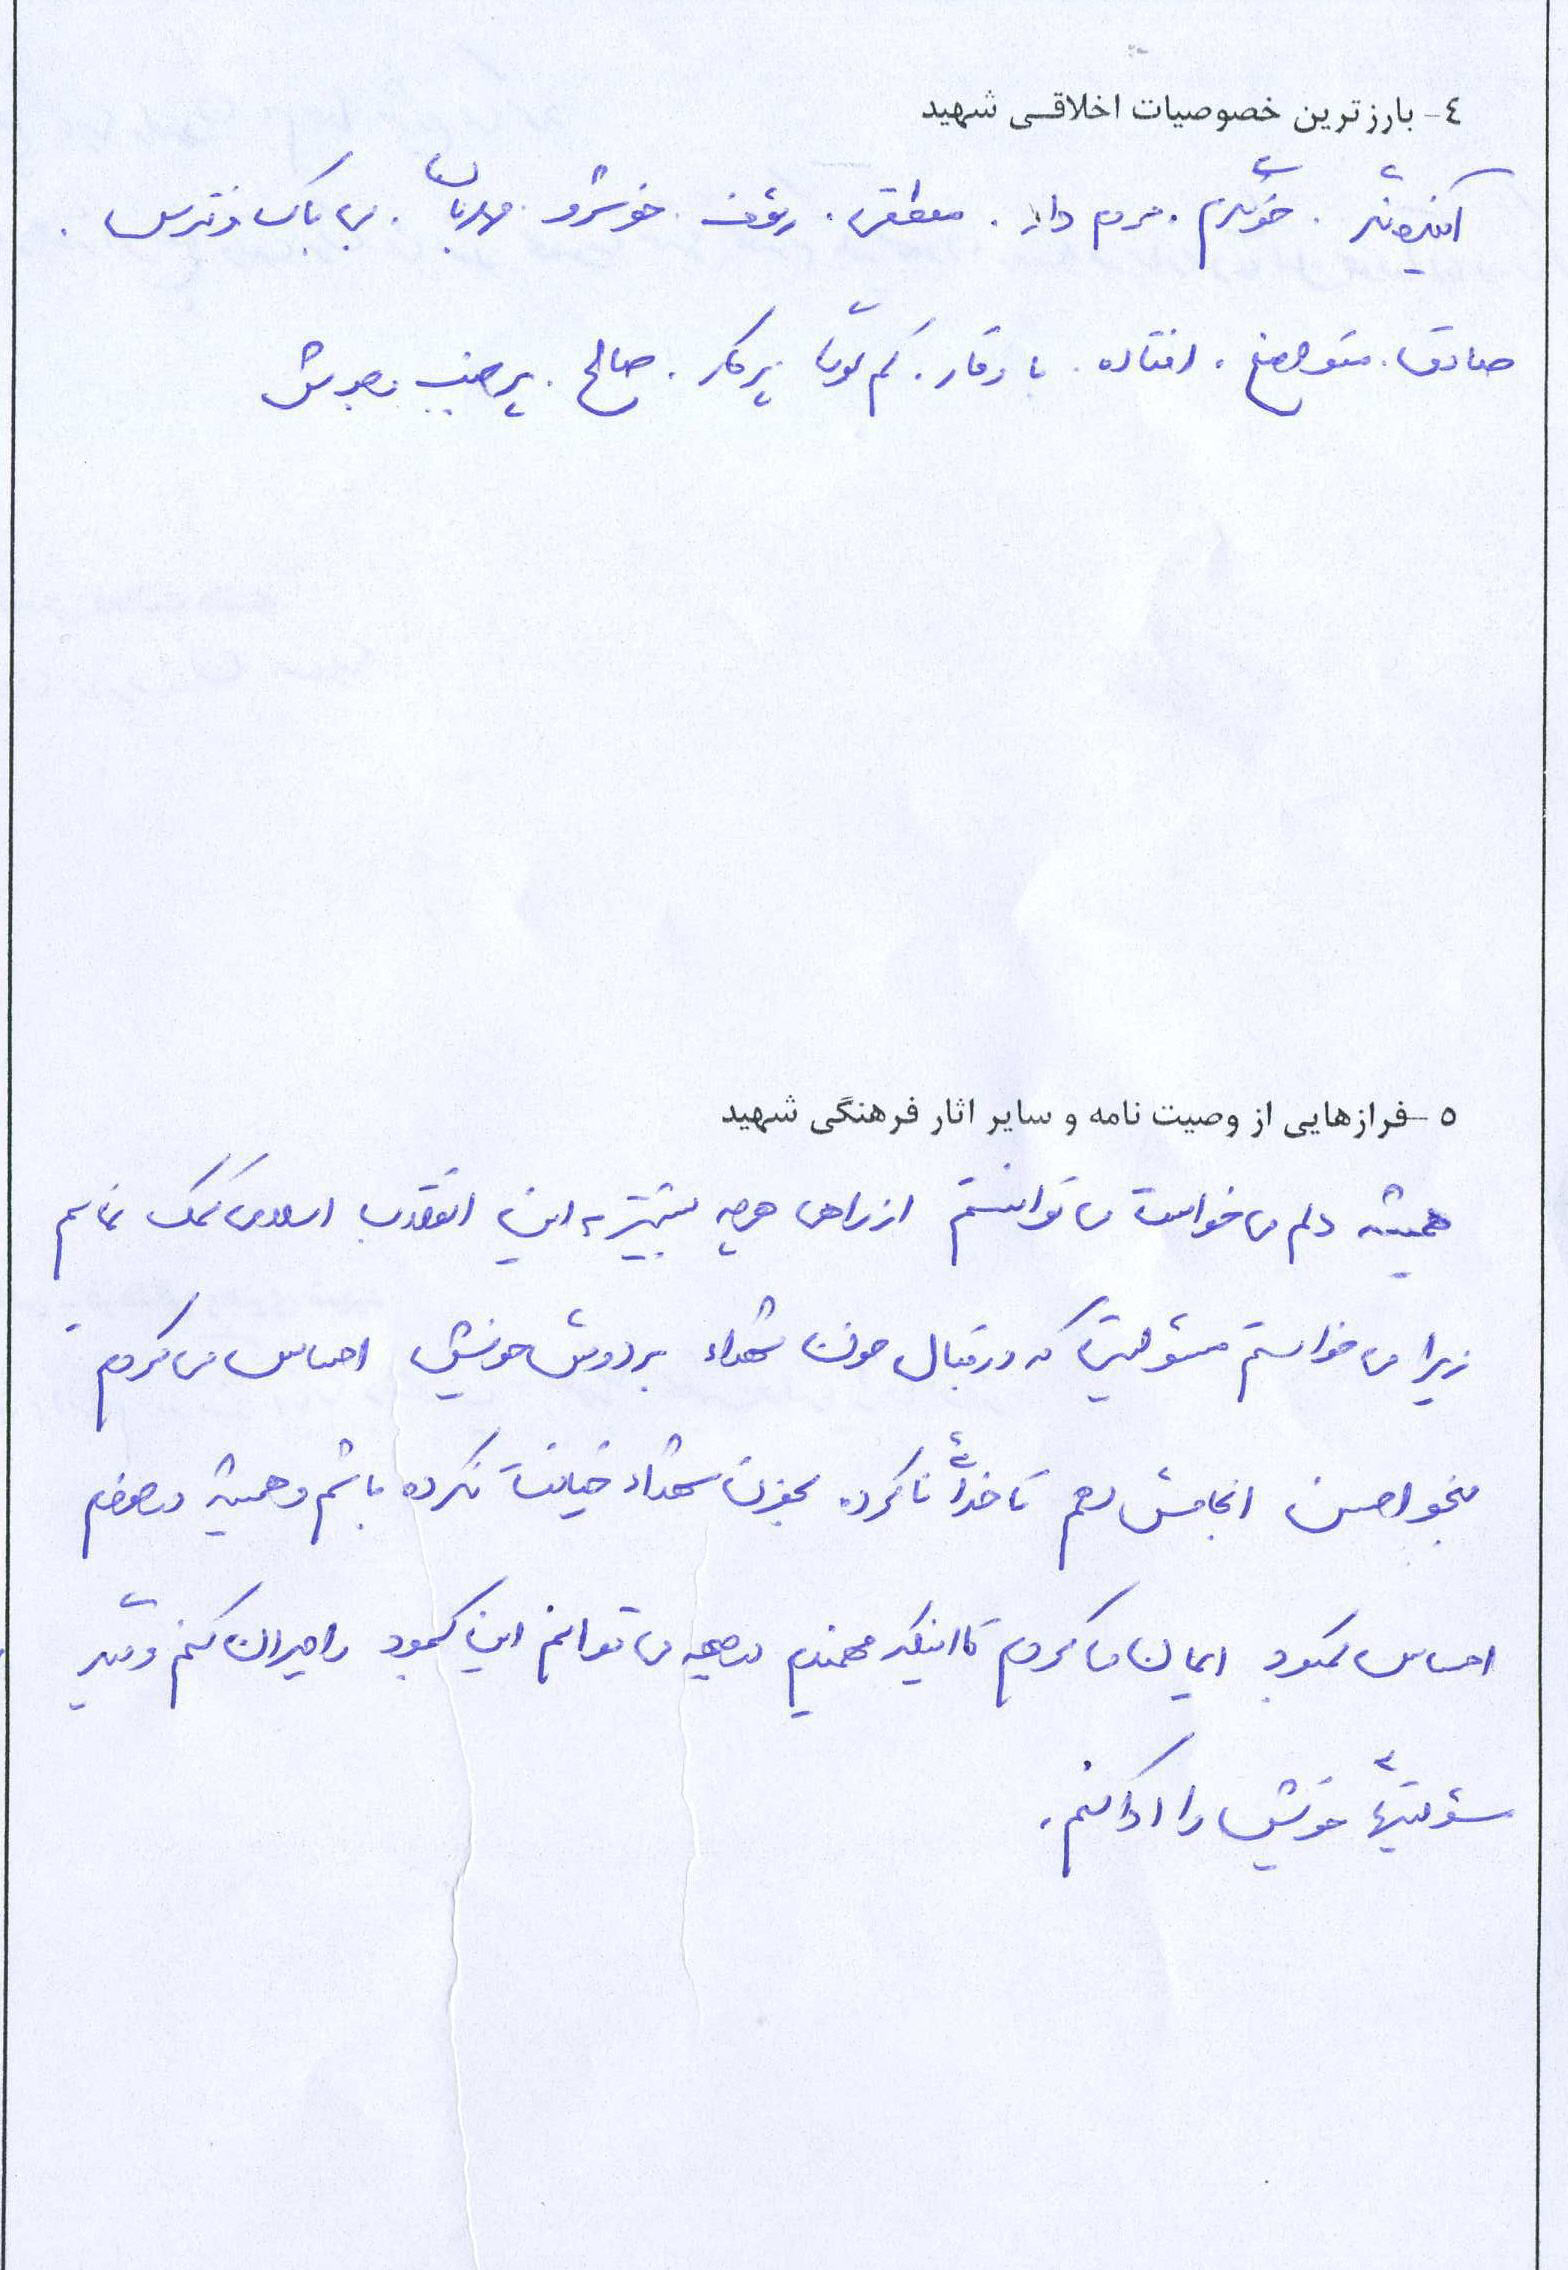 ٤- بارزترین خصوصیات اخلاقی شهید
خونگرم . مردم دار . منطقی . رئوف . خوشرو . مهربان . بی باک و نترس .
صادق . متواضع . افتاده . با وقار . کم گوی پرکار . صالح .
٥- فرازهایی از وصیت نامه و سایر اثار فرهنگی شهید
همیشه دلم می خواست می توانستم از راهی هرچه بیشتر به این انقلاب اسلامی کمک نمایم
زیرا می خواستم مسئولیتی که در قبال خون شهداء بر دوش خویش احساس می کردم
بنحو احسن انجامش دهم تا خدای ناکرده بخون شهداء خیانت نکرده باشم و همیشه در خودم
احساس کمبود ایمان می کردم تا اینکه فهمیدم در جبهه می توانم این کمبود را جبران کنم و نیز
مسئولیتهای خویش را ادا کنم .